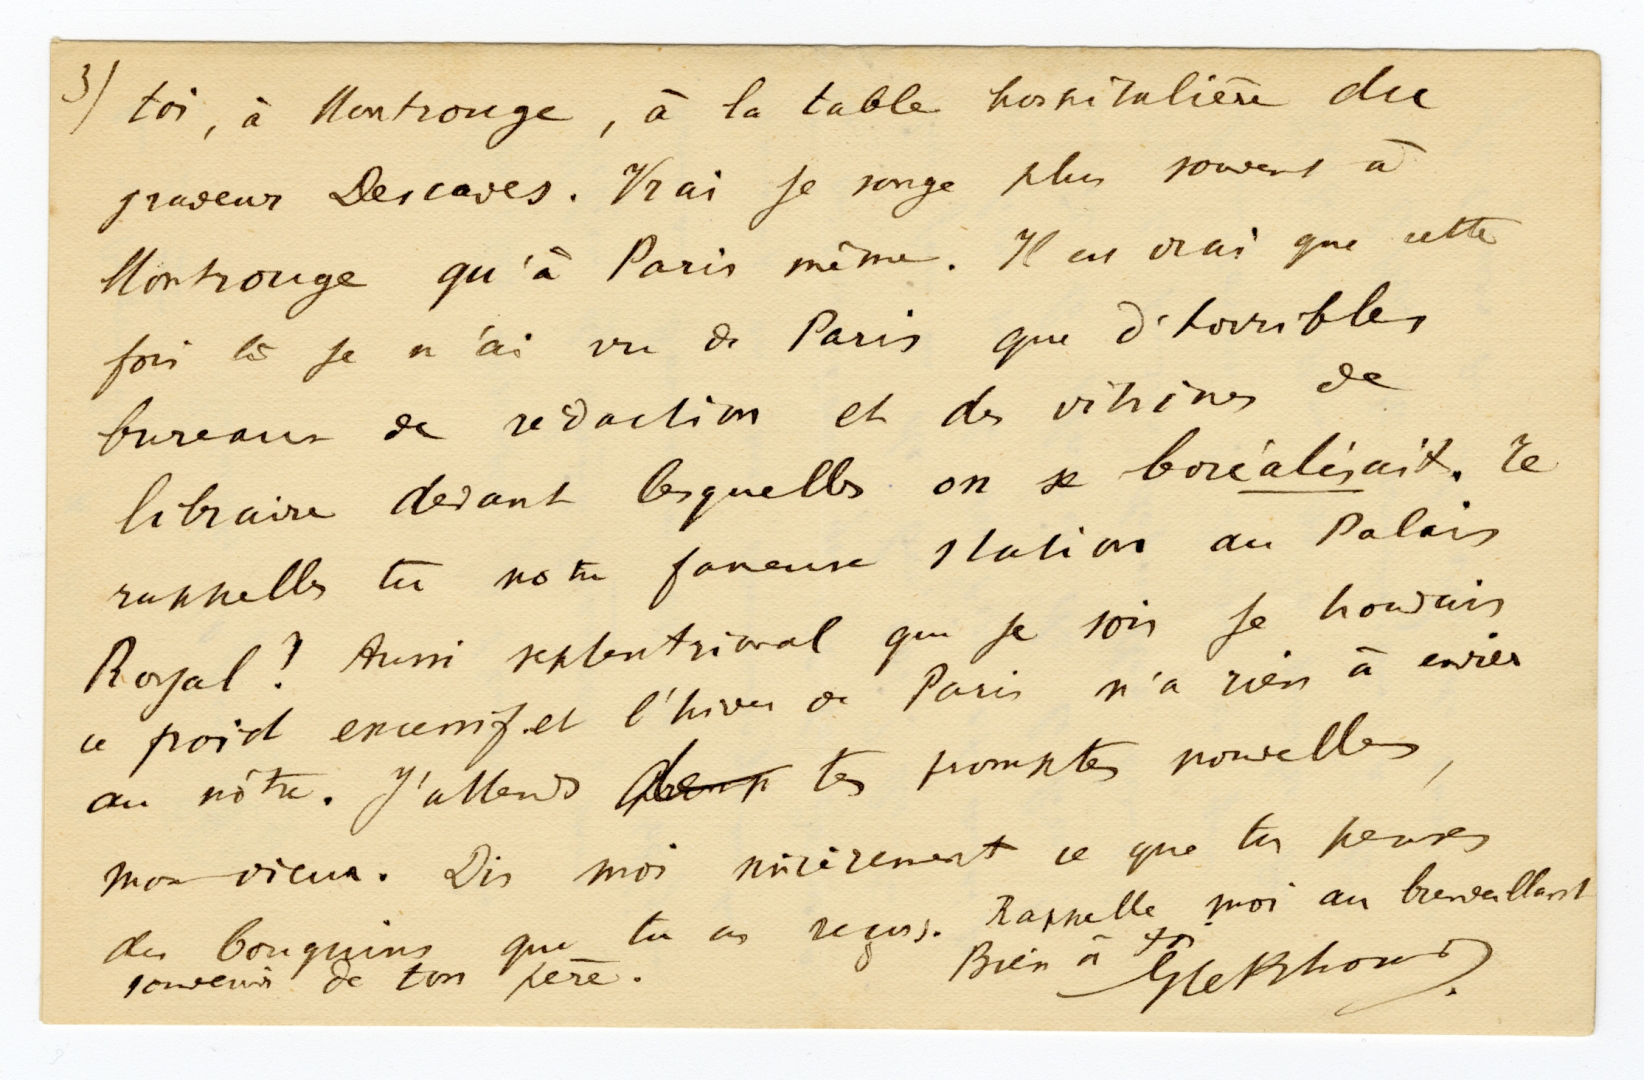 3/ toi, à Montrouge, à la table hospitalière du
graveur Descaves. Vrai je songe plus souvent à
Montrouge qu'à Paris même. Il est vrai que cette
fois là je n'ai vu de Paris que d'horribles
bureaux de rédaction et des vitrines de
libraire devant lesquelles on se boréalisait. Te
rappelles tu notre fameuse station au Palais
Royal ? Aussi septentrional que je sois je trouvais
ce froid excessif et l'hiver de Paris n'a rien à envier
au nôtre. J'attends tes promptes nouvelles,
mon vieux. Dis moi sincèrement ce que tu penses
des bouquins que tu as reçus. Rappelle moi au bienveillant
souvenir de ton père.
Bien à toi
G Eekhoud